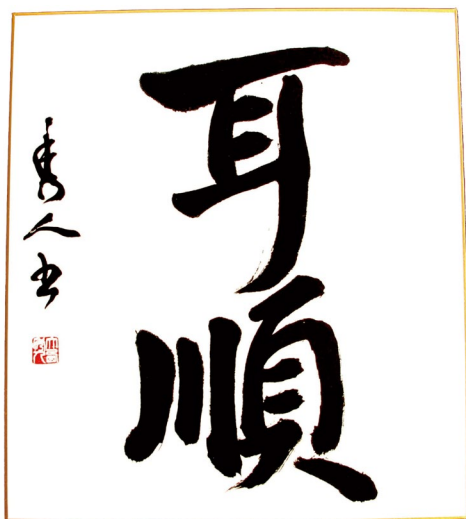 耳順
秀人書